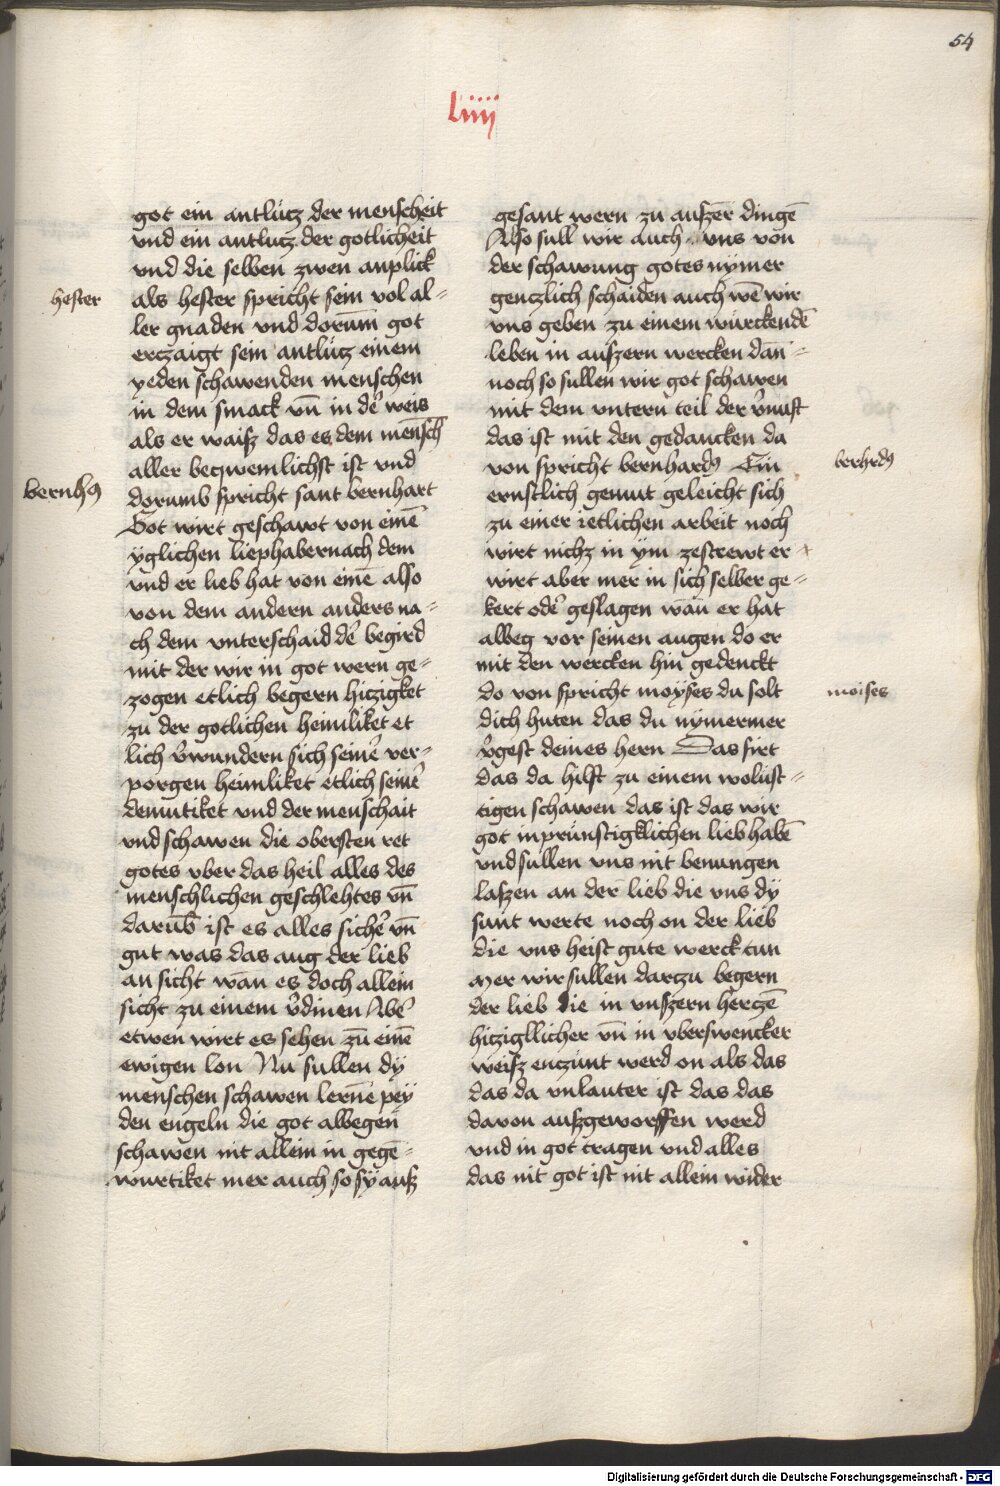 54
liiij
got ein antlücz der menscheit
vnd ein antlucz der gotlicheit
vnd die selben zwen anplick
hester
als hester spricht sein vol al=
ler gnaden vnd dorum̄ got
erczaigt sein antlücz einem
yeden schawenden menschen
in dem smack vn̄ in de᷑ weis
als er waisz das es dem mensch
aller beqwemlichst ist vnd
bernhꝰ
dorumb spricht sant bernhart
Got wirt geschawt von eine᷑
ÿglichen liephaber nach dem
vnd er lieb hat von eine᷑ also
von dem andern anders na=
ch dem vnterschaid de᷑ begird
mit der wir in got wern ge=
zogen etlich begern hiczigket
zu der gotlichen heimliket et
lich v᷑wundern sich seine᷑ ver=
porgen heimliket etlich seine᷑
demutiket vnd der menschait
vnd schawen die obersten ret
gotes vber das heil alles des
menschlichen geschlehtes vn̄
darub̄ ist es alles siche᷑ vn̄
gut was das aug der lieb
an sicht wan̄ es doch allein
sicht zu einem v᷑dinen Abe᷑
etwen wirt es sehen zu eine᷑
ewigen lon Nu sullen dÿ
menschen schawen lerne᷑ peÿ
den engeln die got albegen
schawen nit allein in gege̅=
wurtiket mer auch so sÿ ausz
gesant wern zu auszer dinge̅
Also sull wir auch vns von
der schawung gotes nÿmer
genczlich schaiden auch we̅ wir
vns geben zu einem würckende̅
leben in auszern wercken dan̄=
noch so sullen wir got schawen
mit dem vntern teil der v᷑nuft
das ist mit den gedancken da
von spricht bernhardꝰ Ein
berhrdꝰ
ernstlich gemut geleicht sich
zu einer ietlichen arbeit noch
wirt nichz in ÿm zestrewt er
wirt aber mer in sich selber ge=
kert ode᷑ geslagen wan̄ er hat
albeg vor seinen augen do er
mit den wercken hin gedenckt
do von spricht moÿses du solt
moises
dich huten das du nÿmermer
v᷑gest deines hern Das firt
das da hilft zu einem wolust=
tigen schawen das ist das wir
got inprünstigklichen lieb habe̅
vnd sullen vns nit benungen
laszen an der lieb die vns dÿ
sunt werte noch on der lieb
die vns heist gute werck tun
Mer wir sullen darzu begern
der lieb die in vnszern hercze̅
hiczigllicher vn̄ in vberswencker
weisz enczünt werd on als das
das da vnlauter ist das das
davon auszgeworffen werd
vnd in got tragen vnd alles
das nit got ist nit allein wider
Digitalisierung gefördert durch die Deutsche Forschungsgemeinschaft - DFG